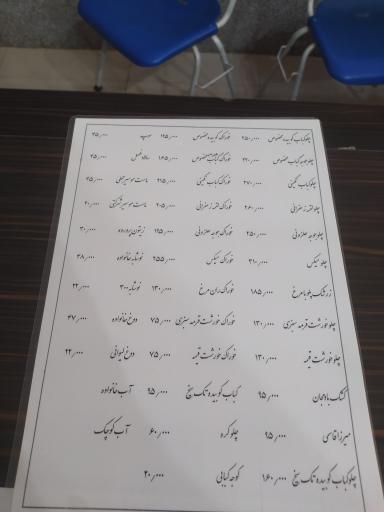 چلوکباب کوبیده مخصوص ۲۵۰/۰۰۰ خوراک کوبیده مخصوص ۱۹۵/۰۰۰ سوپ ۲۵/۰۰۰
چلو جوجه کباب مخصوص ۲۲۰/۰۰۰ خوراک مخصوص ۱۶۵/۰۰۰ سالاد فصل ۲۵/۰۰۰
چلوکباب نگینی ۲۷۰/۰۰۰ خوراک کباب نگینی ۲۱۵/۰۰۰ ماست موسیر محلی ۲۵/۰۰۰
چلو لقمه زعفرانی ۲۶۰/۰۰۰ خوراک لقمه زعفرانی ۲۰۵/۰۰۰ ماست موسیر شرکتی ۲۰/۰۰۰
چلو جوجه حلزونی ۲۵۰/۰۰۰ خوراک جوجه حلزونی ۱۹۵/۰۰۰ زیتون پرورده ۳۰/۰۰۰
چلو میکس ۳۱۰/۰۰۰ خوراک میکس ۲۵۵/۰۰۰ نوشابه خانواده ۳۸/۰۰۰
زرشک پلو با مرغ ۱۸۵/۰۰۰ خوراک ران مرغ ۱۳۰/۰۰۰ نوشابه ۳۰۰ ۲۲/۰۰۰
چلو خورشت قرمه سبزی ۱۳۰/۰۰۰ خوراک خورشت قرمه سبزی ۷۵/۰۰۰ دوغ خانواده ۴۷/۰۰۰
چلو خورشت قیمه ۱۳۰/۰۰۰ خوراک خورشت قیمه ۷۵/۰۰۰ دوغ لیوانی ۲۲/۰۰۰
کشک بادمجان ۹۵/۰۰۰ کباب کوبیده تک سیخ ۹۵/۰۰۰ آب خانواده
میرزا قاسمی ۹۵/۰۰۰ چلو کره ۶۰/۰۰۰ آب کوچک
چلوکباب کوبیده تک سیخ ۱۶۰/۰۰۰ گوجه کبابی ۲۰/۰۰۰